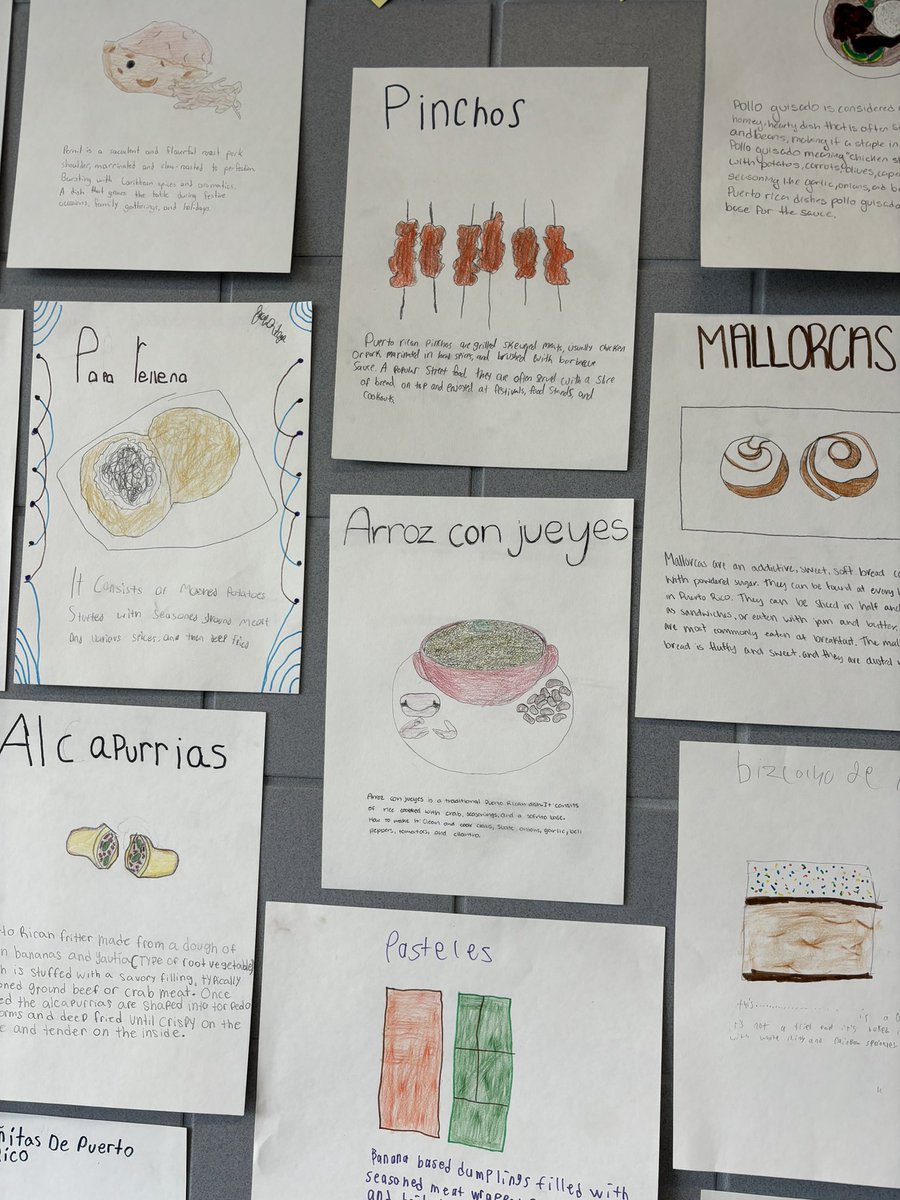 Pernil is a succulent and flavorful roast pork
shoulder, marinated and slow-roasted to perfection.
Bursting with Caribbean spices and aromatics.
A dish that graces the table during festive
occasions, family gatherings, and holidays.
Pinchos
Puerto rican pinchos are grilled skewered meats, usually chicken
or pork marinated in bold spices, and brushed with barbecue
sauce. A popular street food they are often served with a slice
of bread on top and enjoyed at festivals, food stands, and
cookouts.
Pollo guisado is considered
homey, hearty dish that is often
and beans, making it a staple in
Pollo guisado meaning "chicken
with potatoes, carrots, olives,
seasoning like garlic, onions, and
Puerto rican dishes pollo guisado
base for the sauce.
Papa rellena
It consists of Mashed Potatoes
Stuffed with seasoned ground meat
and various spices, and then deep fried
MALLORCAS
Mallorcas are an addictive, sweet, soft bread
with powdered sugar. They can be found at every
in Puerto Rico. They can be sliced in half and
as sandwiches, or eaten with jam and butter.
are most commonly eaten at breakfast. The
bread is fluffy and sweet, and they are dusted
Arroz con jueyes
Arroz con jueyes is a traditional Puerto Rican dish. It consists
of rice cooked with crab, seasonings, and a sofrito base.
How to make it: Clean and cook crabs, sauté onions, garlic, bell
peppers, tomatoes, and cilantro.
Alcapurrias
Rican fritter made from a dough of
bananas and yautia (type of root vegetable)
is stuffed with a savory filling, typically
ground beef or crab meat. Once
the alcapurrias are shaped into torpedo
and deep fried until crispy on the
and tender on the inside.
Pasteles
Banana based dumplings filled with
seasoned meat
and
bizcocho de
this is a
it's not a fried food it's baked
with white icing and rainbow sprinkles
De Puerto